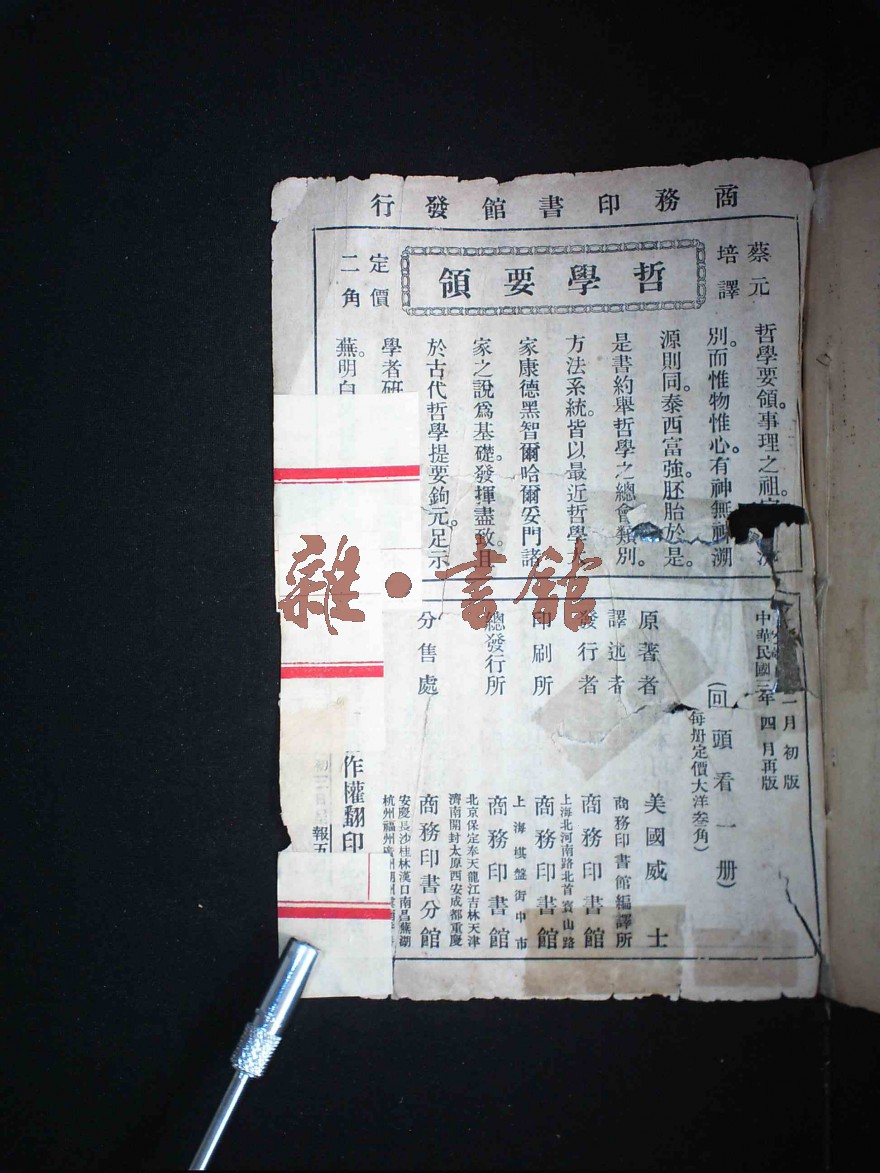 商務印書館發行
蔡元培譯
哲學要領
定價二角
哲學要領。事理之祖。
別。而惟物惟心。有神無神。溯
源則同。泰西富強。胚胎於是。
是書約舉哲學之總會類別。
方法系統。皆以最近哲學大
家康德黑智爾哈爾妥門諸
家之說爲基礎。發揮盡致。且
於古代哲學提要鉤元。足示
學者研
蕪。明白
一月初版
中華民國三年四月再版
(回頭看一册)
(每册定價大洋叁角)
原著者 美國威士
譯述者 商務印書館編譯所
發行者 商務印書館
上海北河南路北首寶山路
印刷所 商務印書館
上海棋盤街中市
總發行所 商務印書館
北京保定奉天龍江吉林天津
濟南開封太原西安成都重慶
分售處 商務印書分館
安慶長沙桂林漢口南昌蕪湖
杭州福州
作權翻印
報五
雜·書館